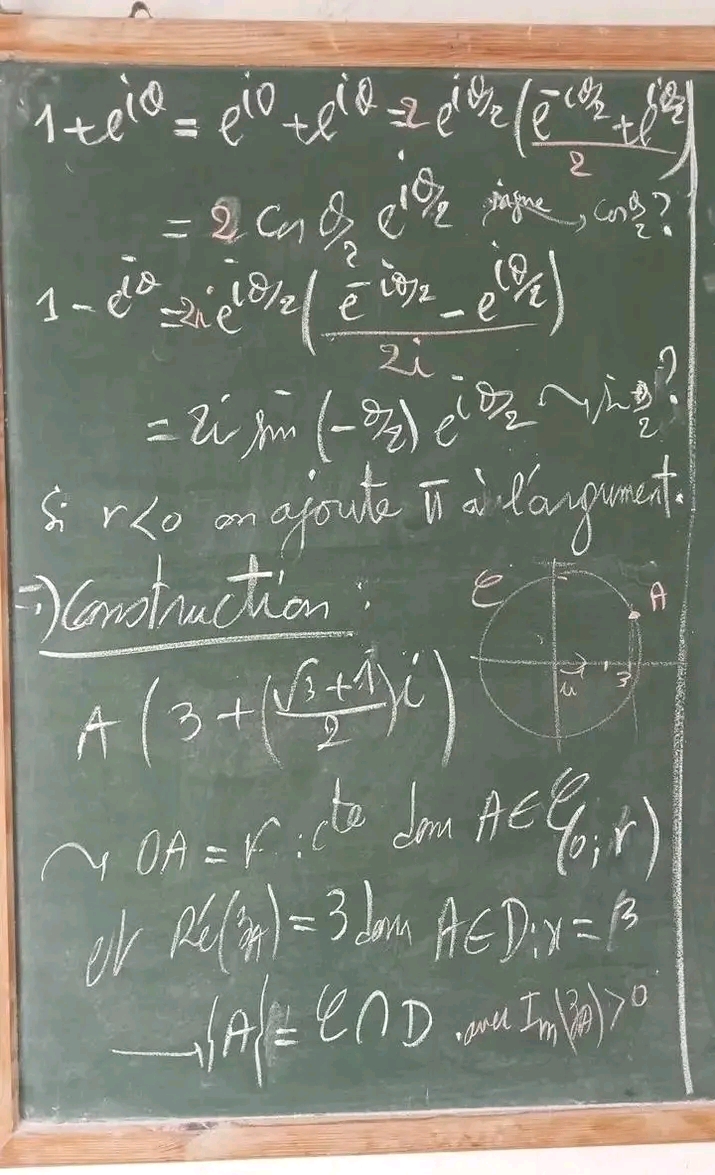 1 + e^{iθ} = e^{i0} + e^{iθ} = 2 e^{iθ/2} ( (e^{-iθ/2} + e^{iθ/2}) / 2 )
= 2 cos θ/2 e^{iθ/2} signe → cos θ/2 ?
1 - e^{iθ} = 2i e^{iθ/2} ( (e^{-iθ/2} - e^{iθ/2}) / 2i )
= 2i sin (-θ/2) e^{iθ/2} ⤳ sin θ/2 ?
Si r<0 on ajoute π à l'argument.
=) Construction :
𝒞 A
u 3
A ( 3 + ( (√3 + 1) / 2 ) i )
⤳ OA = r : cte donc A ∈ 𝒞(0; r)
et Ré(zA) = 3 donc A ∈ D: x = 3
→ {A} = 𝒞 ∩ D . avec Im(zA) > 0